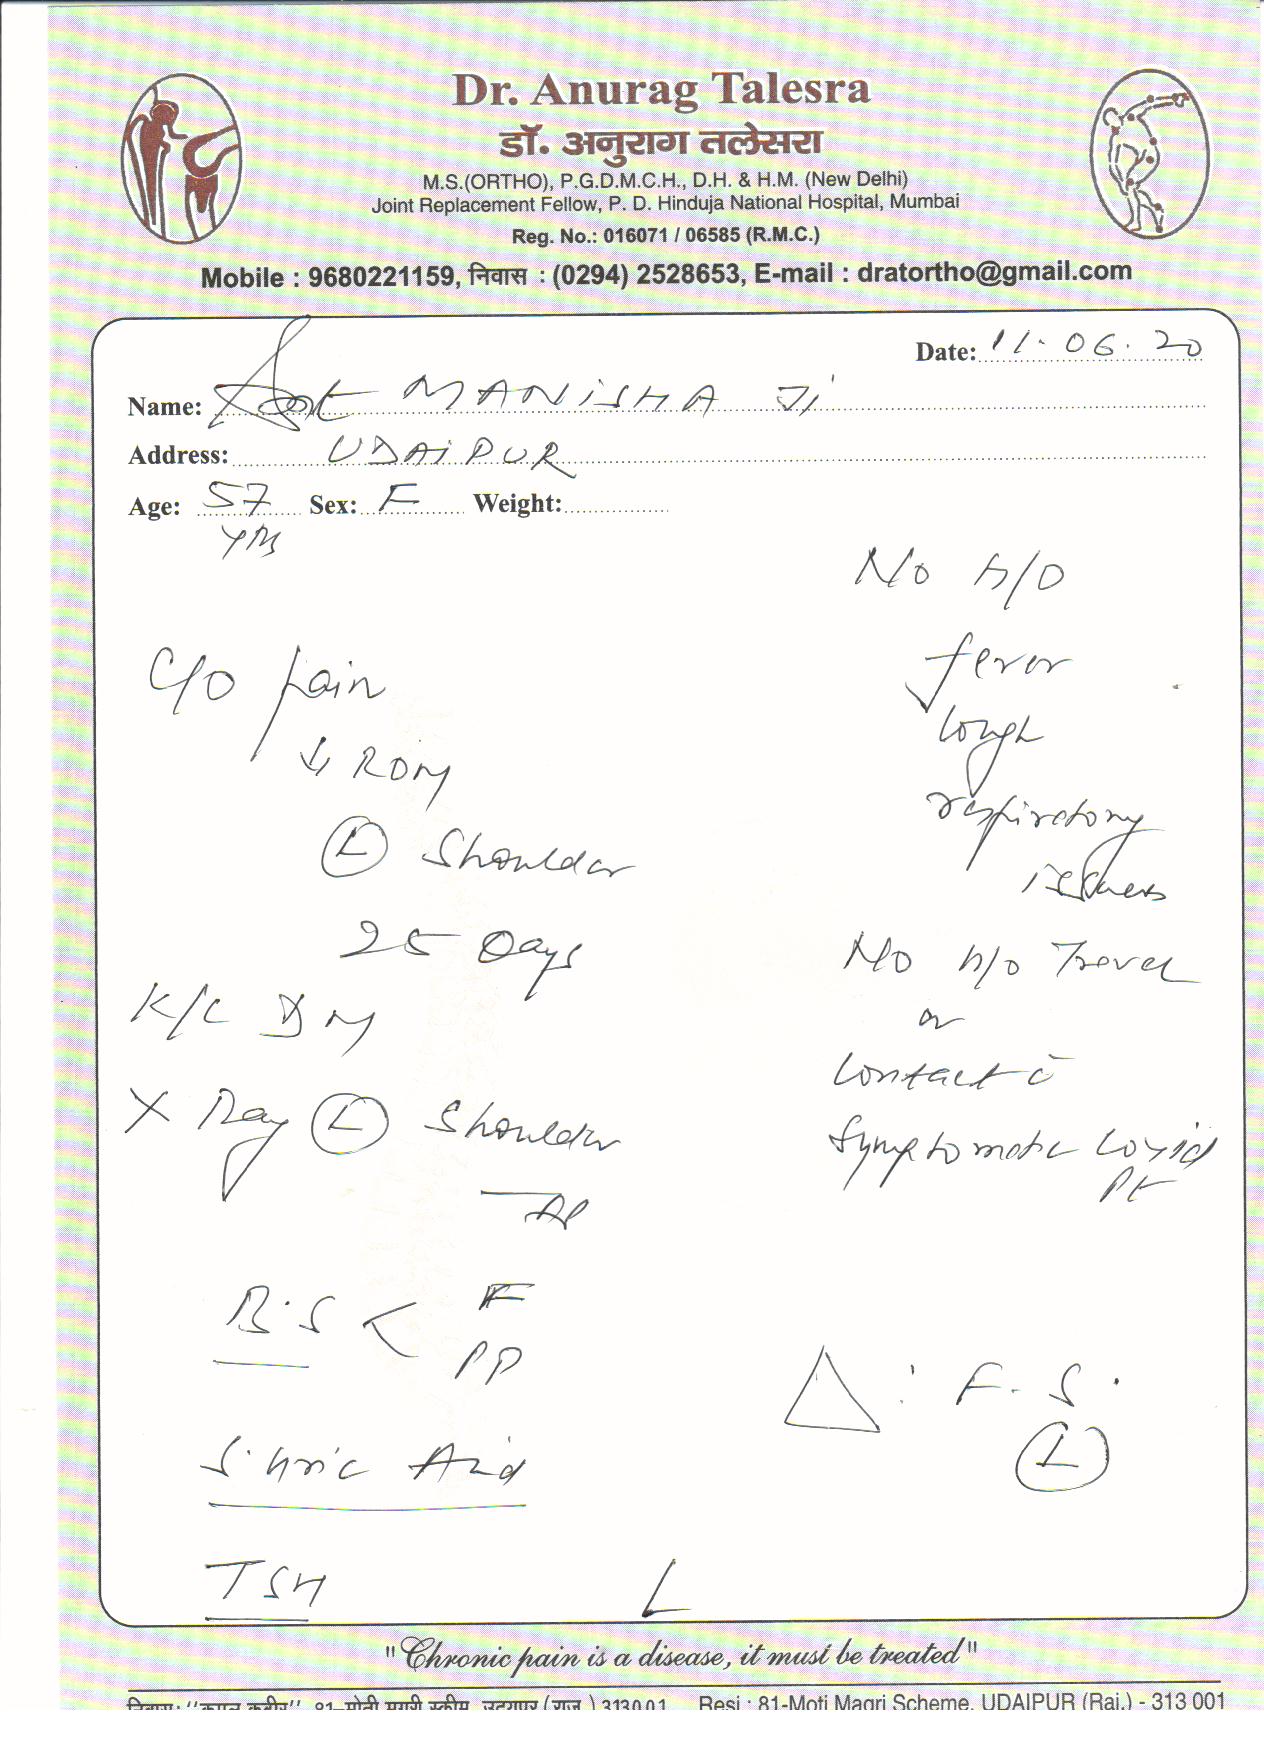 Dr. Anurag Talesra
डॉ. अनुराग तलेसरा
M.S.(ORTHO), P.G.D.M.C.H., D.H. & H.M. (New Delhi)
Joint Replacement Fellow, P. D. Hinduja National Hospital, Mumbai
Reg. No.: 016071 / 06585 (R.M.C.)
Mobile : 9680221159, निवास : (0294) 2528653, E-mail : dratortho@gmail.com
Date: 11.06.20
Name: MANiSHA Ji
Address: UDAiPUR
Age: 57 Sex: F Weight:
yrs
C/O pain
↓ ROM
(L) Shoulder
25 Days
K/C DM
X Ray (L) Shoulder
AP
B.S < F
PP
S. Uric Acid
TSH
No h/o
fever
cough
respiratory
issues
No h/o Travel
or
contact c̄
symptomatic covid
Pt
Δ : F.S.
(L)
L
"Chronic pain is a disease, it must be treated"
81-मोती मगरी स्कीम, उदयपुर (राज.) 313001 Resi : 81-Moti Magri Scheme, UDAIPUR (Raj.) - 313 001